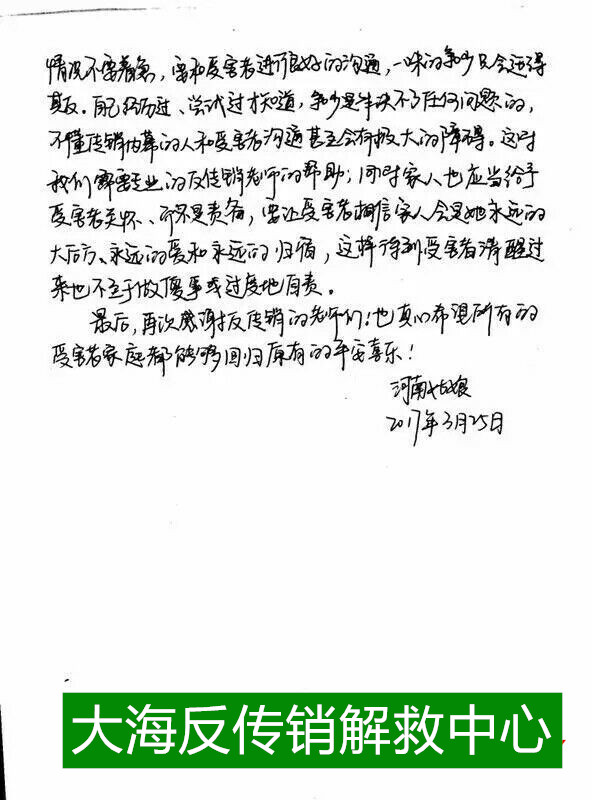 情况不要着急，要和受害者进行良好的沟通，一味的争吵只会适得
其反。自己经历过、尝试过才知道，争吵是解决不了任何问题的，
不懂传销内幕的人和受害者沟通甚至会有极大的障碍。这时
我们需要专业的反传销老师的帮助；同时家人也应当给予
受害者关怀、而不是责备，要让受害者相信家人会是她永远的
大后方、永远的爱和永远的归宿，这样等到受害者清醒过
来也不至于做傻事或过度地自责。
最后，再次感谢反传销的老师们！也真心希望所有的
受害者家庭都能够回归原有的平安喜乐！
河南姑娘
2017年3月25日
大海反传销解救中心